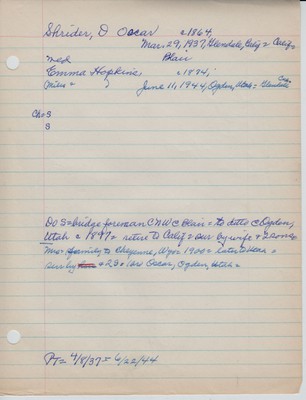 Shrider, D Oscar c1864,
Mar. 29, 1937, Glendale, Calif = Calif =
med Blair
Emma Hopkins c1874,
Miles + June 11, 1944, Ogden, Utah = Glendale Ca.
Ch = S
S
DO S = bridge foreman CNW c Blair = to ditto c Ogden,
Utah = 1897 = retire to Calif = sur by wife + 2 sons =
Mrs = family to Cheyenne, Wyo = 1900 = later to Utah =
sur by 2S = Oscar, Ogden, Utah =
PT = 4/8/37 = 6/22/44